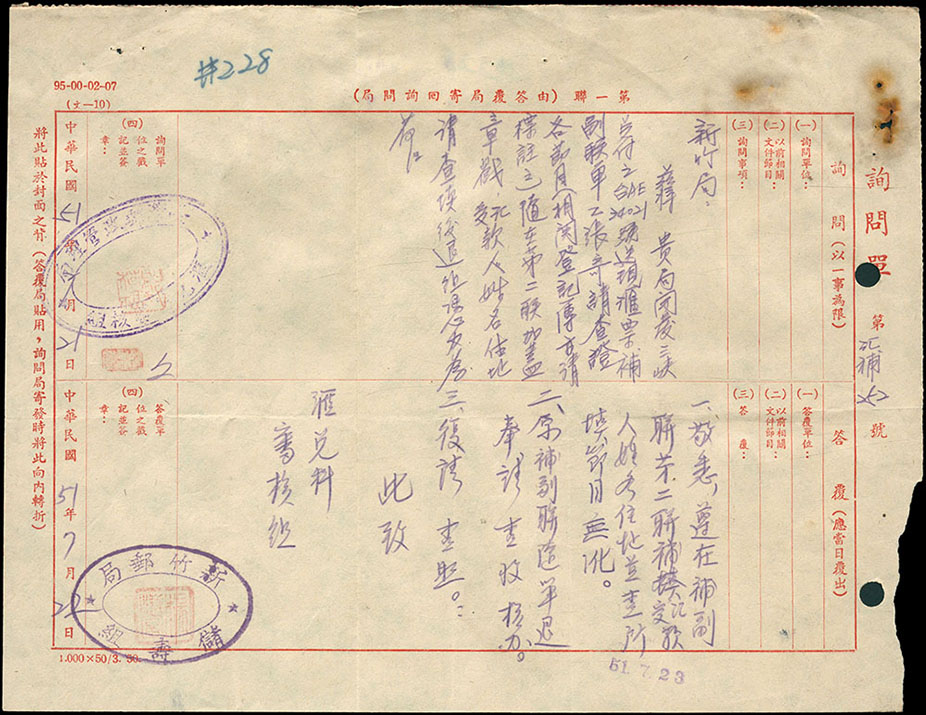 #228
95-00-02-07
(文—10)
第一聯(由答覆局寄回詢問局)
詢問單
第 匯補 262 號
詢問(以一事為限)
(一)詢問單位:
(二)以前相關文件節目:
(三)詢問事項:
新竹局:
茲釋 貴局開發三峽
兌付之 SAE 34021 號送現滙票補
副聯單乙張 請查證
各節目(相関登記簿 請
標註)隨在第二聯加蓋
章戳 受款人姓名住地
請查填後退組 為
荷
(四)詢問單位之戳記並簽章:
中華民國 51 年 月 21 日
答覆(應當日覆出)
(一)答覆單位:
(二)以前相關文件節目:
(三)答覆:
一、敬悉,遵在補副
聯第二聯補 受款
人姓名住地並查所
填節目無訛。
二、原補副聯隨單退
奉請查收核办。
三、復請 查照。
此致
滙兌科
審核組
51.7.23
(四)答覆單位之戳記並簽章:
中華民國 51 年 7 月 22 日
新竹郵局
儲壽組
將此貼於封面之背(答覆局貼用,詢問局寄發時將此向內轉折)
1.000×50/3. 50.